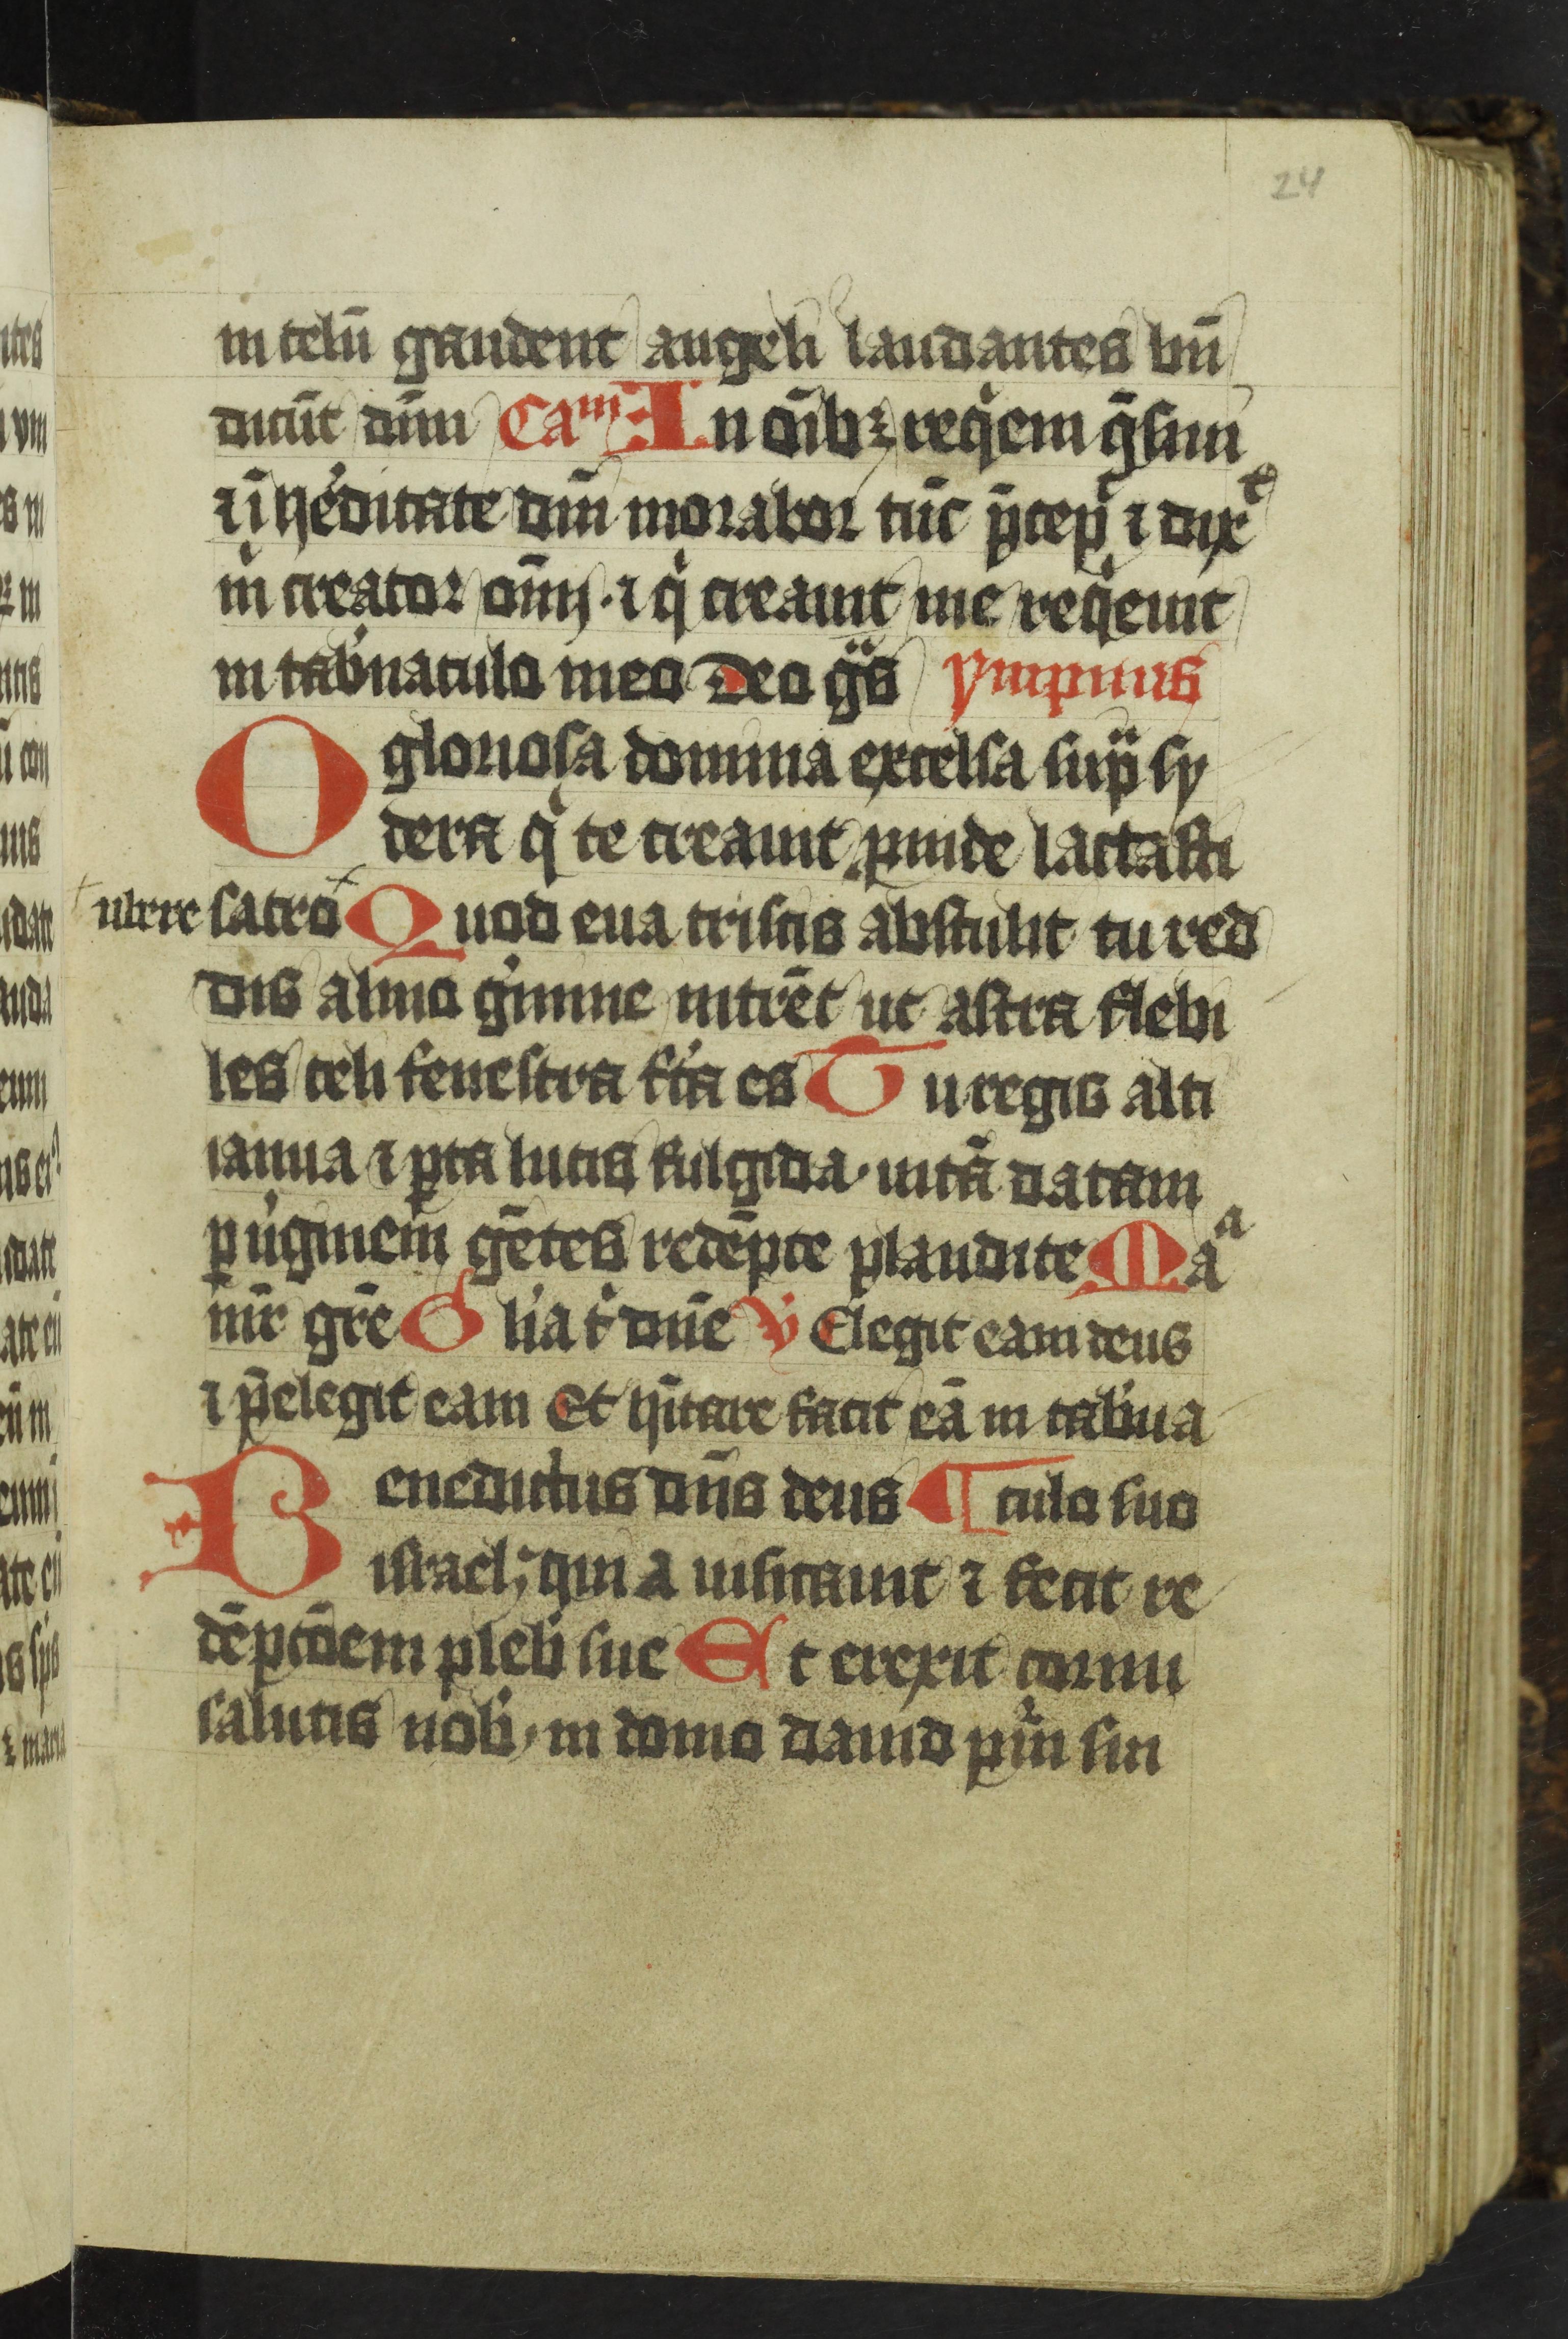 24
in celū gaudent angeli laudantes bn̄
dicūt dn̄m Cam In oīb; reqͥem q̄siui
⁊ ī heͬditate dn̄i morabor tūc p̄cep̄ ⁊ dixͭ
mͥ creator om̄i. ⁊ qͥ creauit me reqͥeuit
in tab̓naculo meo Deo gͣs ympnus
O gloriosa domina excelsa supͣ sy
dera qͥ te creauit ꝓuide lactasti
ubere sacro Quod eua tristis abstulit tu red
dis almo g̓mine intrēt ut astra flebi
les celi fenestra fc̄a es Tu regis alti
ianua ⁊ porta lucis fulgida. uitā datam
ꝑ uͥginem gētes redēpte plaudite Maͣ
mr̄ gr̄e Glia tͥ dn̄e v Elegit eam deus
⁊ p̄elegit eam Et hītare facit eā in tab̓na
Benedictus dn̄s deus ¶ culo suo
israel; quia uisitauit ⁊ fecit re
dēptōem pleb̓ sue Et erexit cornu
salutis nob̓. in domo dauid pͧi sui